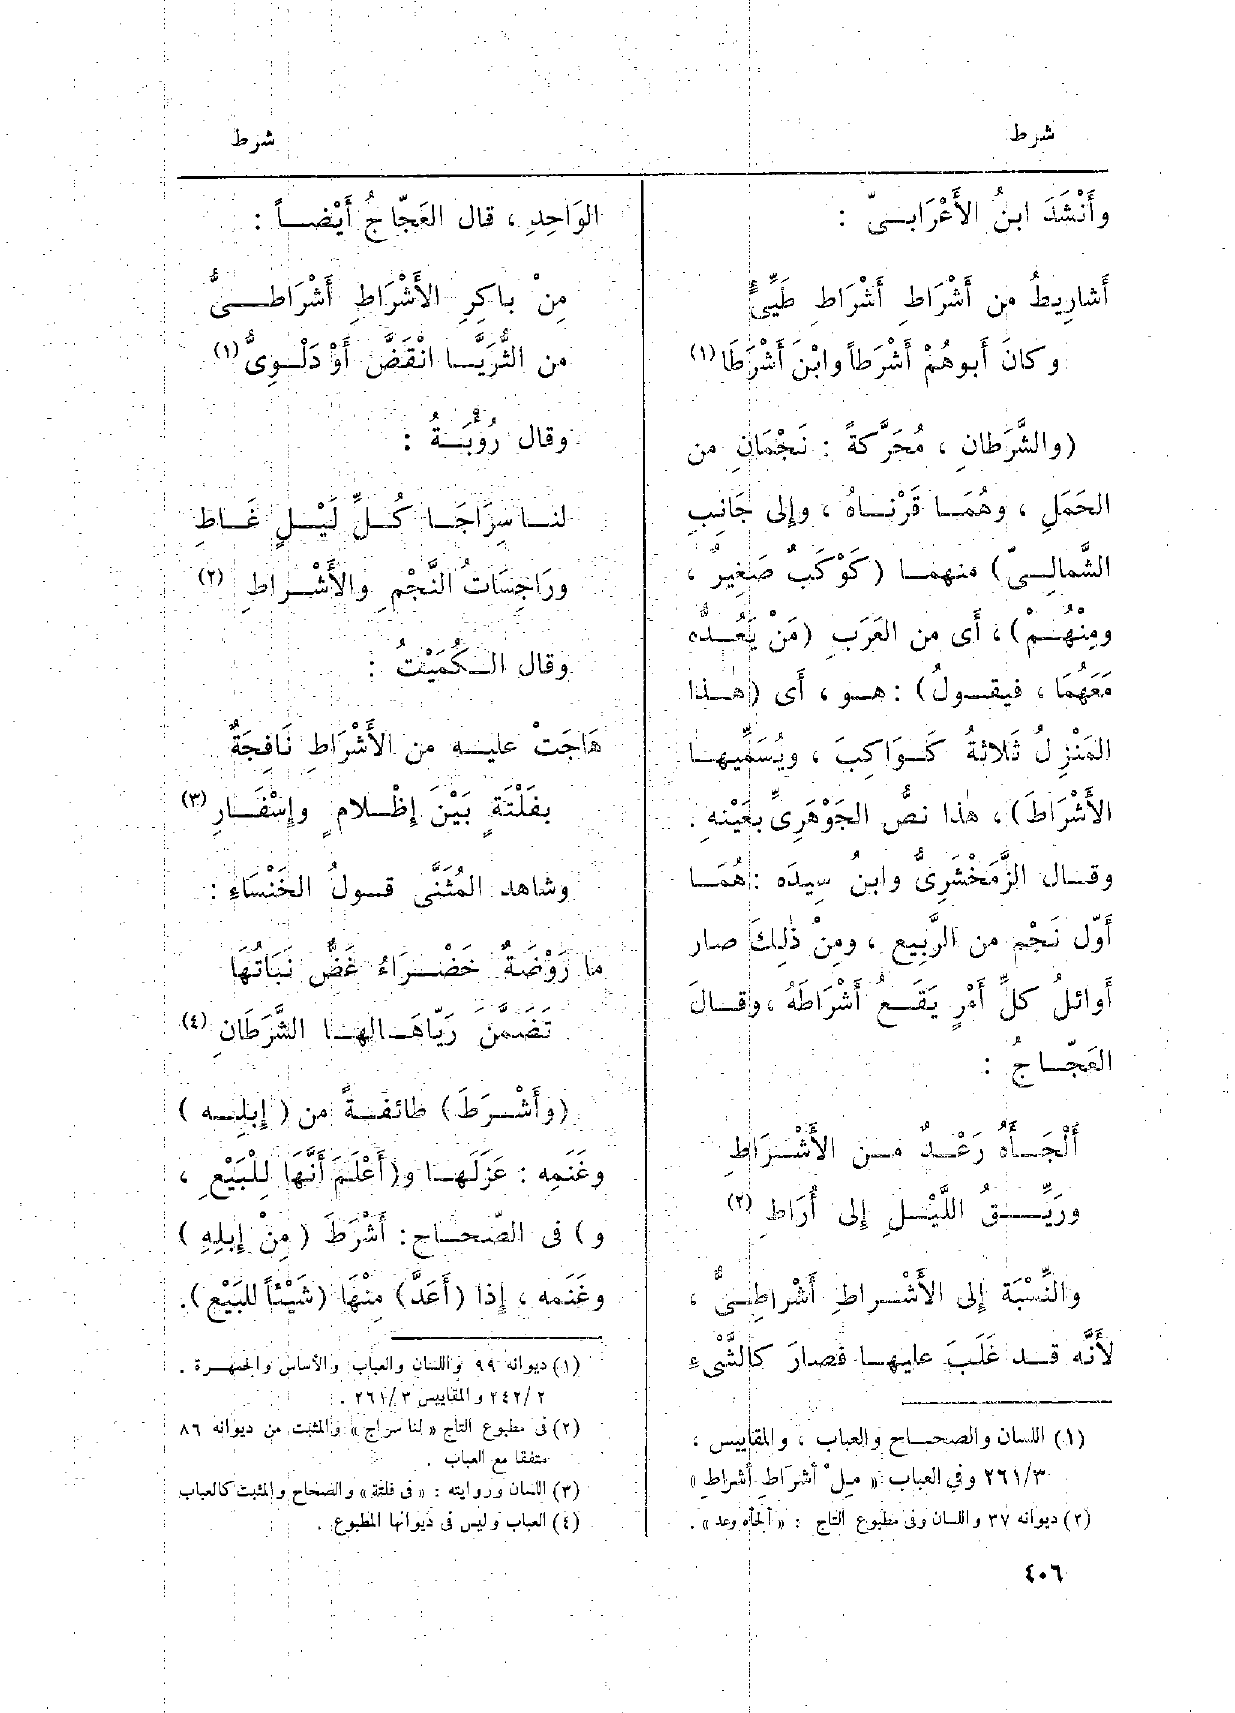 شرط
شرط
وأَنْشَدَ ابنُ الأَعْرَابِىّ :
أَشارِيطُ من أَشْرَاطِ أَشْرَاطِ طَيِّئٍ
وكانَ أَبوهُمْ أَشْرَطاً وابْنَ أَشْرَطَا (١)
(والشَّرَطانِ ، مُحَرَّكةً : نَجْمَانِ من
الحَمَلِ ، وهُمَا قَرْنَاهُ ، وإِلى جَانِبِ
الشَّمالِىّ) منهما (كَوْكَبٌ صَغِيرٌ ،
ومِنْهُمْ) ، أَى من العَرَبِ (مَنْ يَعُدُّه
مَعَهُمَا ، فيقولُ) : هو ، أَى (هٰذا
المَنْزِلُ ثَلاثةُ كَوَاكِبَ ، ويُسَمِّيها
الأَشْرَاطَ) ، هٰذا نصُّ الجَوْهَرِىِّ بعَيْنهِ .
وقال الزَّمَخْشَرِىُّ وابنُ سِيدَه : هُمَا
أَوّل نَجْم من الرَّبِيع ، ومِنْ ذٰلِكَ صار
أَوائلُ كلِّ أَمْرٍ يَقَعُ أَشْرَاطَهُ ، وقالَ
العَجّاجُ :
أَلْجَأَهُ رَعْدٌ من الأَشْرَاطِ
ورَيِّقُ اللَّيْلِ إِلى أُرَاطِ (٢)
والنِّسْبَة إِلى الأَشْراطِ أَشْراطِىٌّ ،
لأَنَّه قد غَلَبَ عليها فصارَ كالشَّىْءِ
(١) اللسان والصحاح والعباب ، والمقاييس ،
٢٦١/٣ وفي العباب « مِلْ أشرَاطِ أشراطِ »
(٢) ديوانه ٣٧ واللسان وفى مطبوع التاج : « ألجأه وعد » .
الوَاحِدِ ، قال العَجّاجُ أَيْضاً :
مِنْ باكِرِ الأَشْرَاطِ أَشْرَاطِىُّ
من الثُّرَيَّا انْقَضَّ أَوْ دَلْوِىُّ (١)
وقال رُؤْبَةُ :
لنا سِرَاجَا كُلِّ لَيْلٍ غَاطِ
ورَاجِسَاتُ النَّجْمِ والأَشْراطِ (٢)
وقال الكُمَيْتُ :
هَاجَتْ عليه من الأَشْرَاطِ نَافِجَةٌ
بفَلْتَةٍ بَيْنَ إِظْلامٍ وإِسْفَارِ (٣)
وشاهد المُثَنَّى قولُ الخَنْسَاءِ :
ما رَوْضَةٌ خَضْرَاءُ غَضٌّ نَبَاتُهَا
تَضَمَّنَ رَيّاهَا لها الشَّرَطَانِ (٤)
(وأَشْرَطَ) طائفةً من (إِبِلِه)
وغَنَمِه : عَزَلَها و(أَعْلَمَ أَنَّهَا لِلْبَيْعِ ،
و) فى الصّحاح : أَشْرَطَ (مِنْ إِبِلِهِ)
وغَنَمه ، إِذا (أَعَدَّ) مِنْهَا (شَيْئاً للبَيْع) .
(١) ديوانه ٩٩ واللسان والعباب والأساس والجمهرة .
٢٤٢/٢ والمقاييس ٢٦١/٣ .
(٢) فى مطبوع التاج « لنا سراج » والمثبت من ديوانه ٨٦
متفقا مع العباب .
(٣) اللسان وروايته : « فى فلتة » والصحاح والمثبت كالعباب
(٤) العباب وليس فى ديوانها المطبوع .
٤٠٦